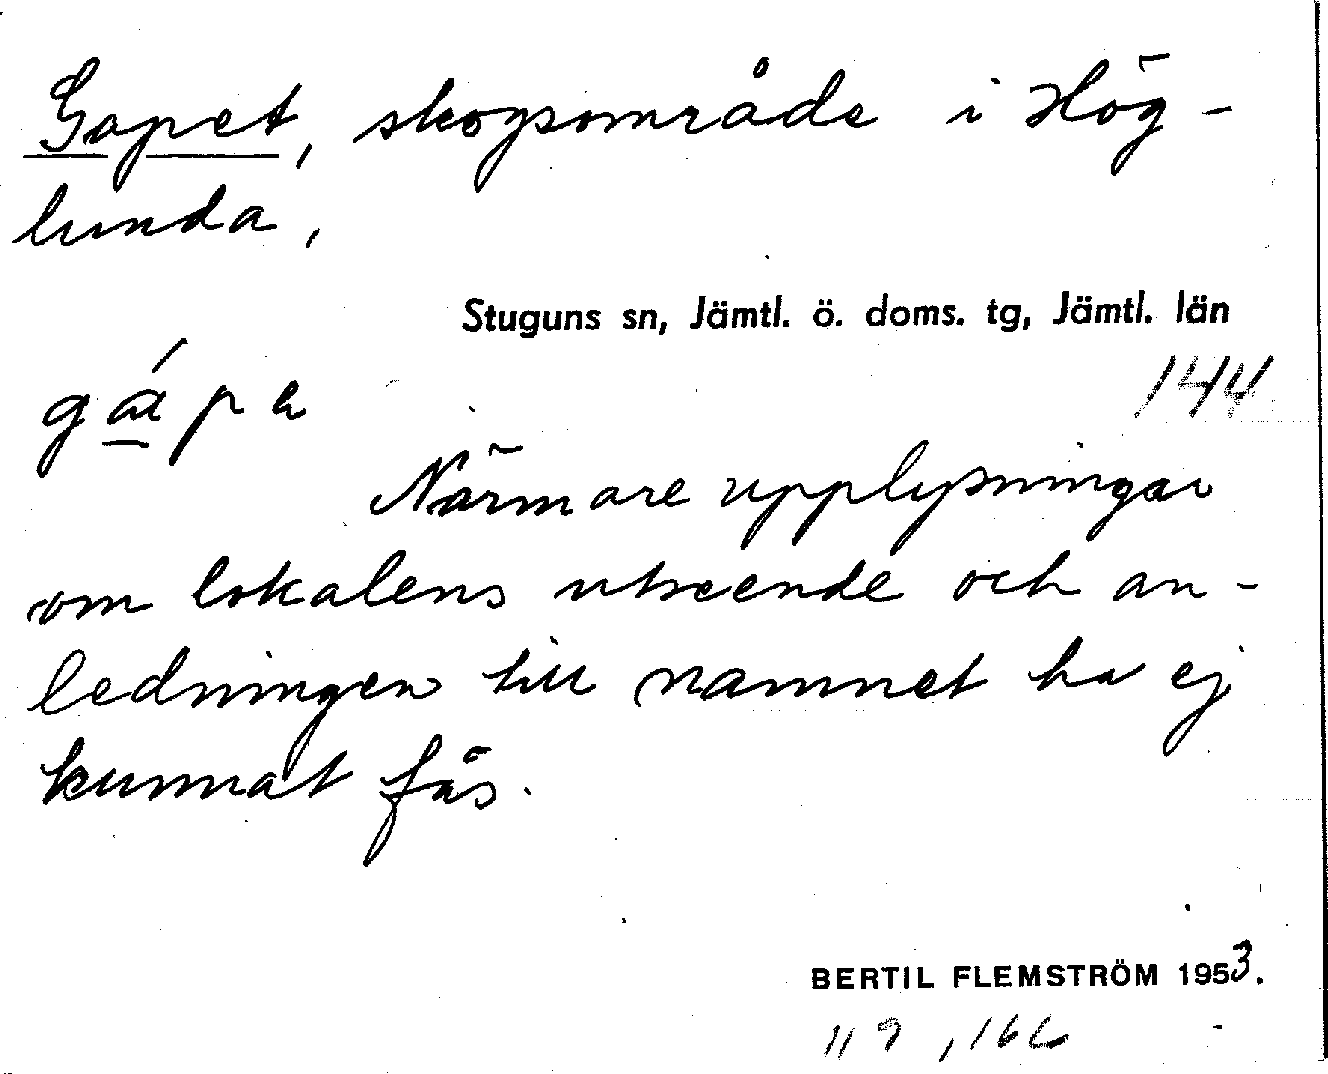 Gapet, skogsområde i Hög-
lunda,
Stuguns sn, Jämtl. ö. doms. tg, Jämtl. län
144
Närmare upplysningar
om lokalens utseende och an-
ledningen till namnet ha ej
kunnat fås.
BERTIL FLEMSTRÖM 1953.
119, 166